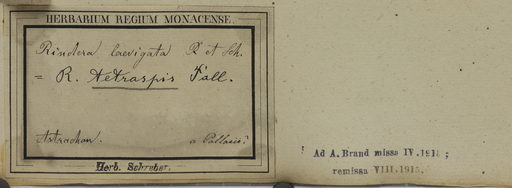 HERBARIUM REGIUM MONACENSE.
Rindera laevigata R et Sch.
= R. tetraspis Pall.
Astrachan. a Pallasio.
Herb. Schreber.
Ad A. Brand missa IV. 1913 ;
remissa VIII. 1915.